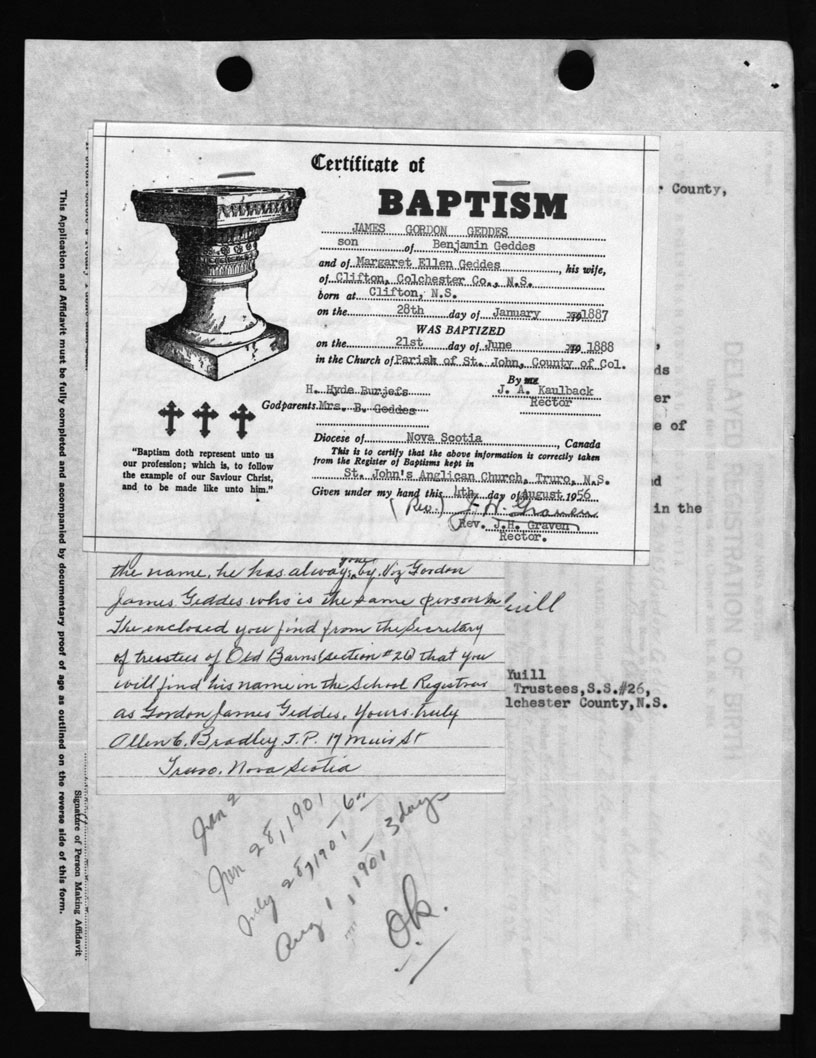 Certificate of
BAPTISM
JAMES GORDON GEDDES
son of Benjamin Geddes
and of Margaret Ellen Geddes, his wife,
of Clifton, Colchester Co., N.S.
born at Clifton, N.S.
on the 28th day of January 1887
WAS BAPTIZED
on the 21st day of June 1888
in the Church of Parish of St. John, County of Col.
By
H. Hyde Burjefs J. A. Kaulback
Godparents. Mrs. B. Geddes Rector
Diocese of Nova Scotia, Canada
This is to certify that the above information is correctly taken
from the Register of Baptisms kept in
St. John's Anglican Church, Truro, N.S.
Given under my hand this 4th day of August 1956
(Rev.) J. H. Graven
(Rev. J.H. Graven)
Rector.
"Baptism doth represent unto us
our profession; which is, to follow
the example of our Saviour Christ,
and to be made like unto him."
County,
ds
er
e of
d
in the
the name, he has always gone by. Viz Gordon
James Geddes who is the same person
The enclosed you find from the Secretary
of trustees of Old Barns (section #26) that you
will find his name in the School Registrar
as Gordon James Geddes. Yours truly
Allen C. Bradley J.P. 17 Muir St
Truro. Nova Scotia
uill
Yuill
Trustees, S.S.#26,
lchester County, N.S.
Jan 2
Jan 28, 1901
July 28, 1901 - 6
Aug 1, 1901 3 days
O.k.
This Application and Affidavit must be fully completed and accompanied by documentary proof of age as outlined on the reverse side of this form.
Signature of Person Making Affidavit
DELAYED REGISTRATION OF BIRTH